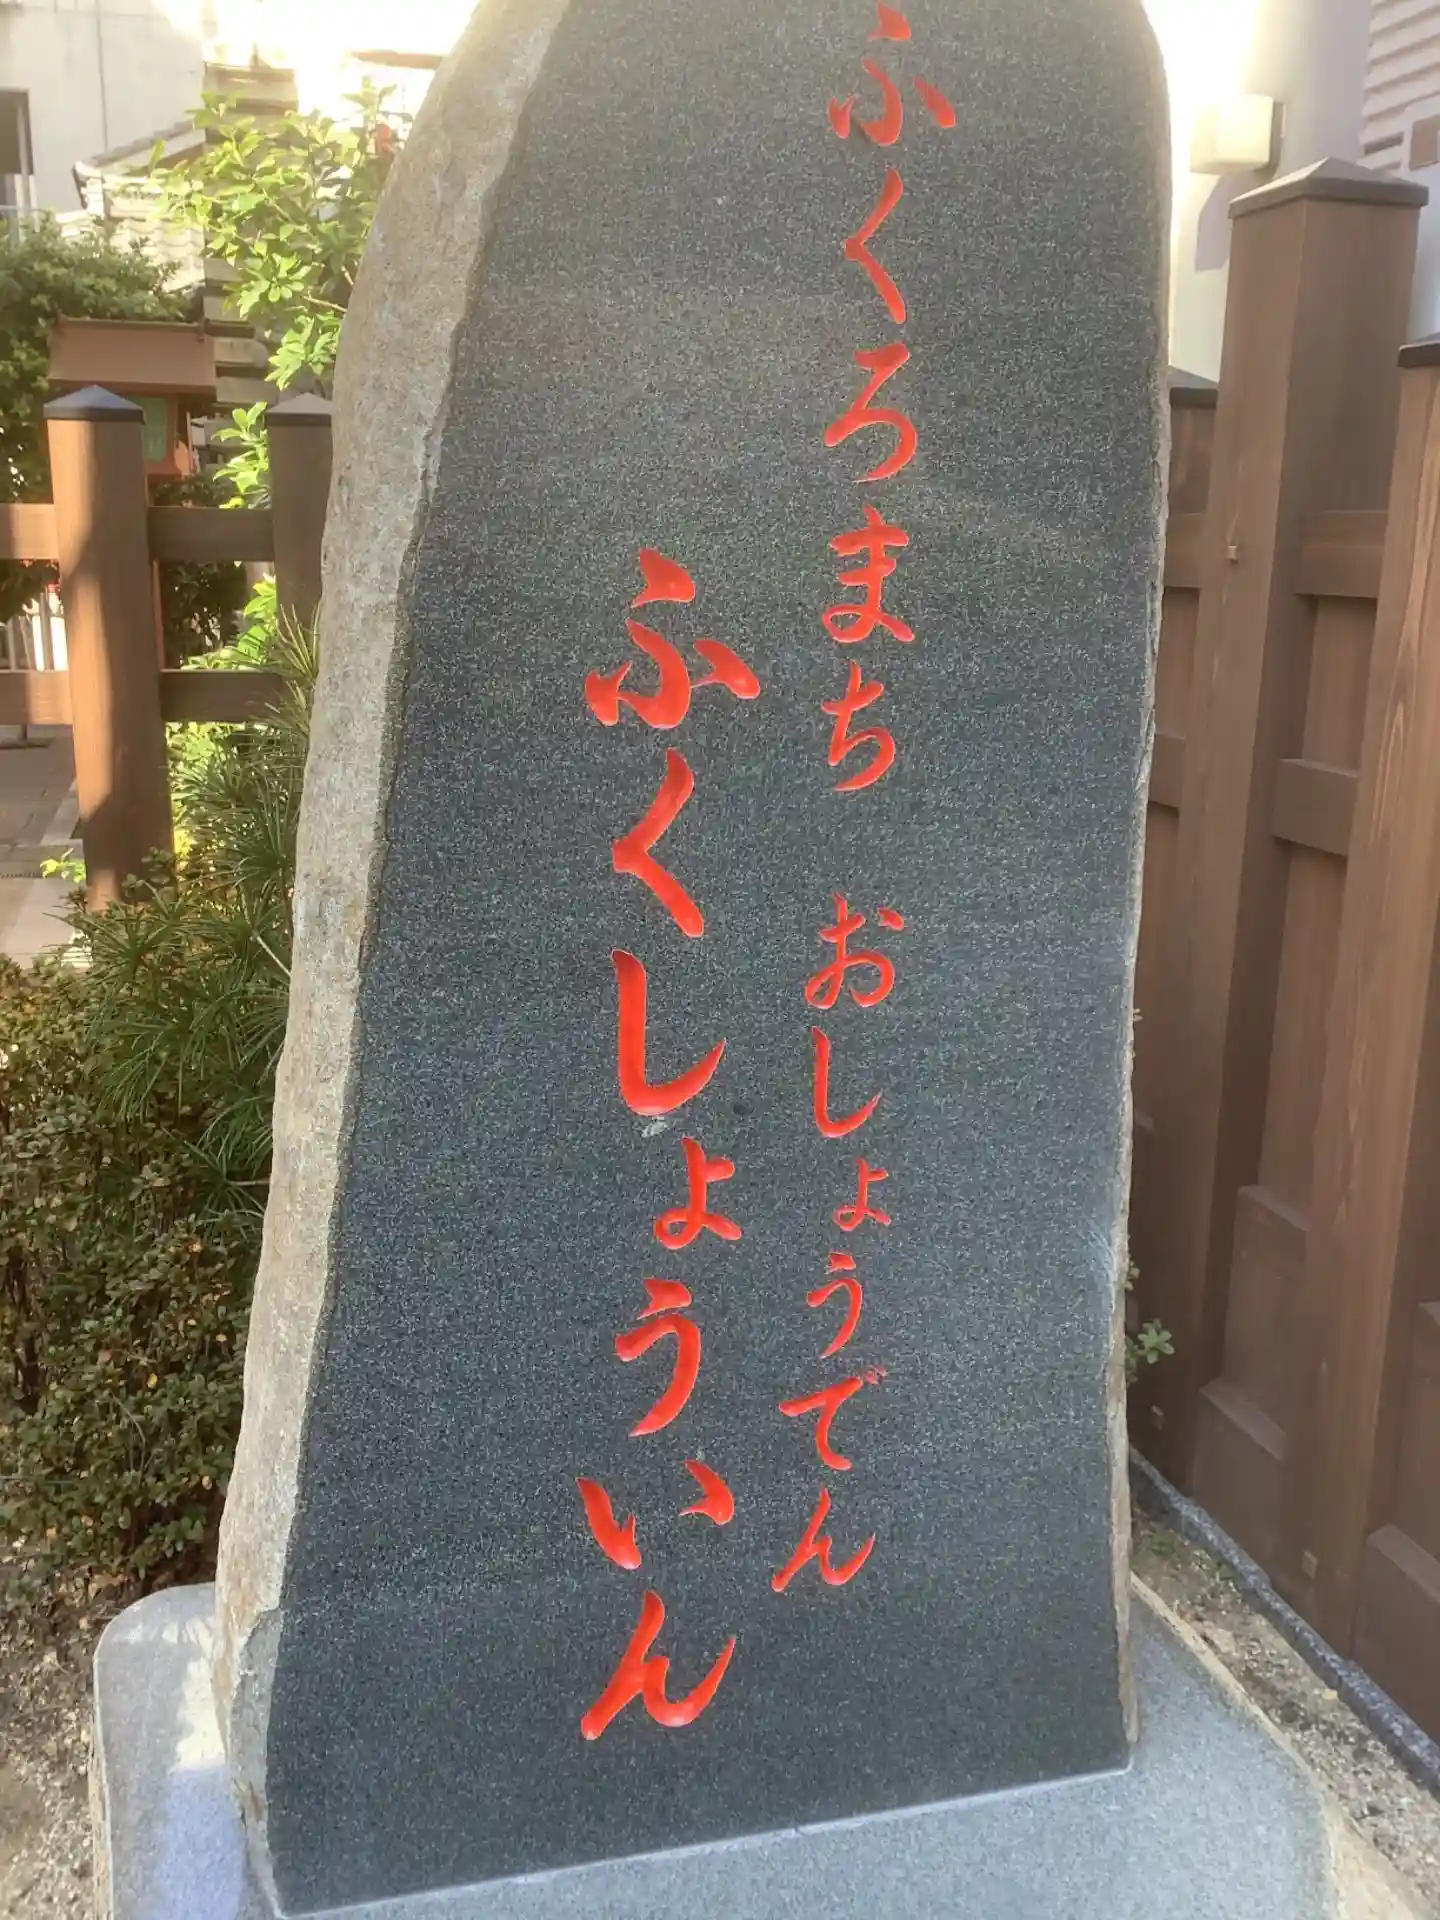 ふくろまち おしょうでん
ふくしょういん